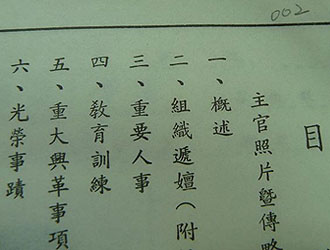 002
目
主官照片暨傳略
一、概述
二、組織遞嬗（附
三、重要人事
四、教育訓練
五、重大興革事項
六、光榮事蹟